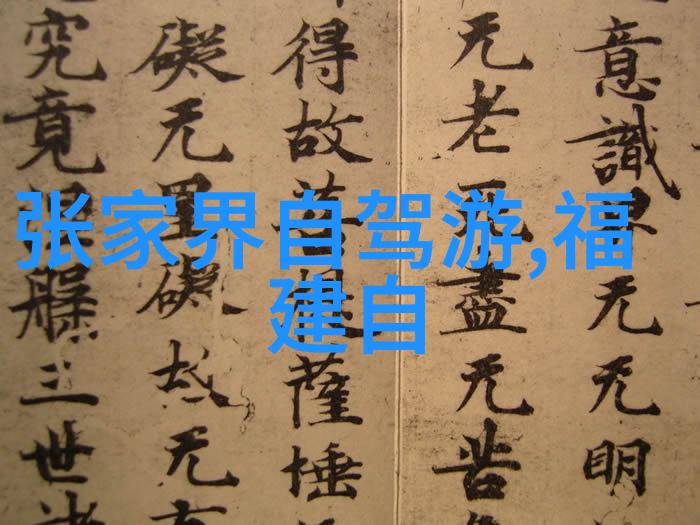 张家界自驾游,福
建自
意識界无无明
无老死盡无苦
得故菩提薩埵
礙无罣礙故无
究竟涅槃三世